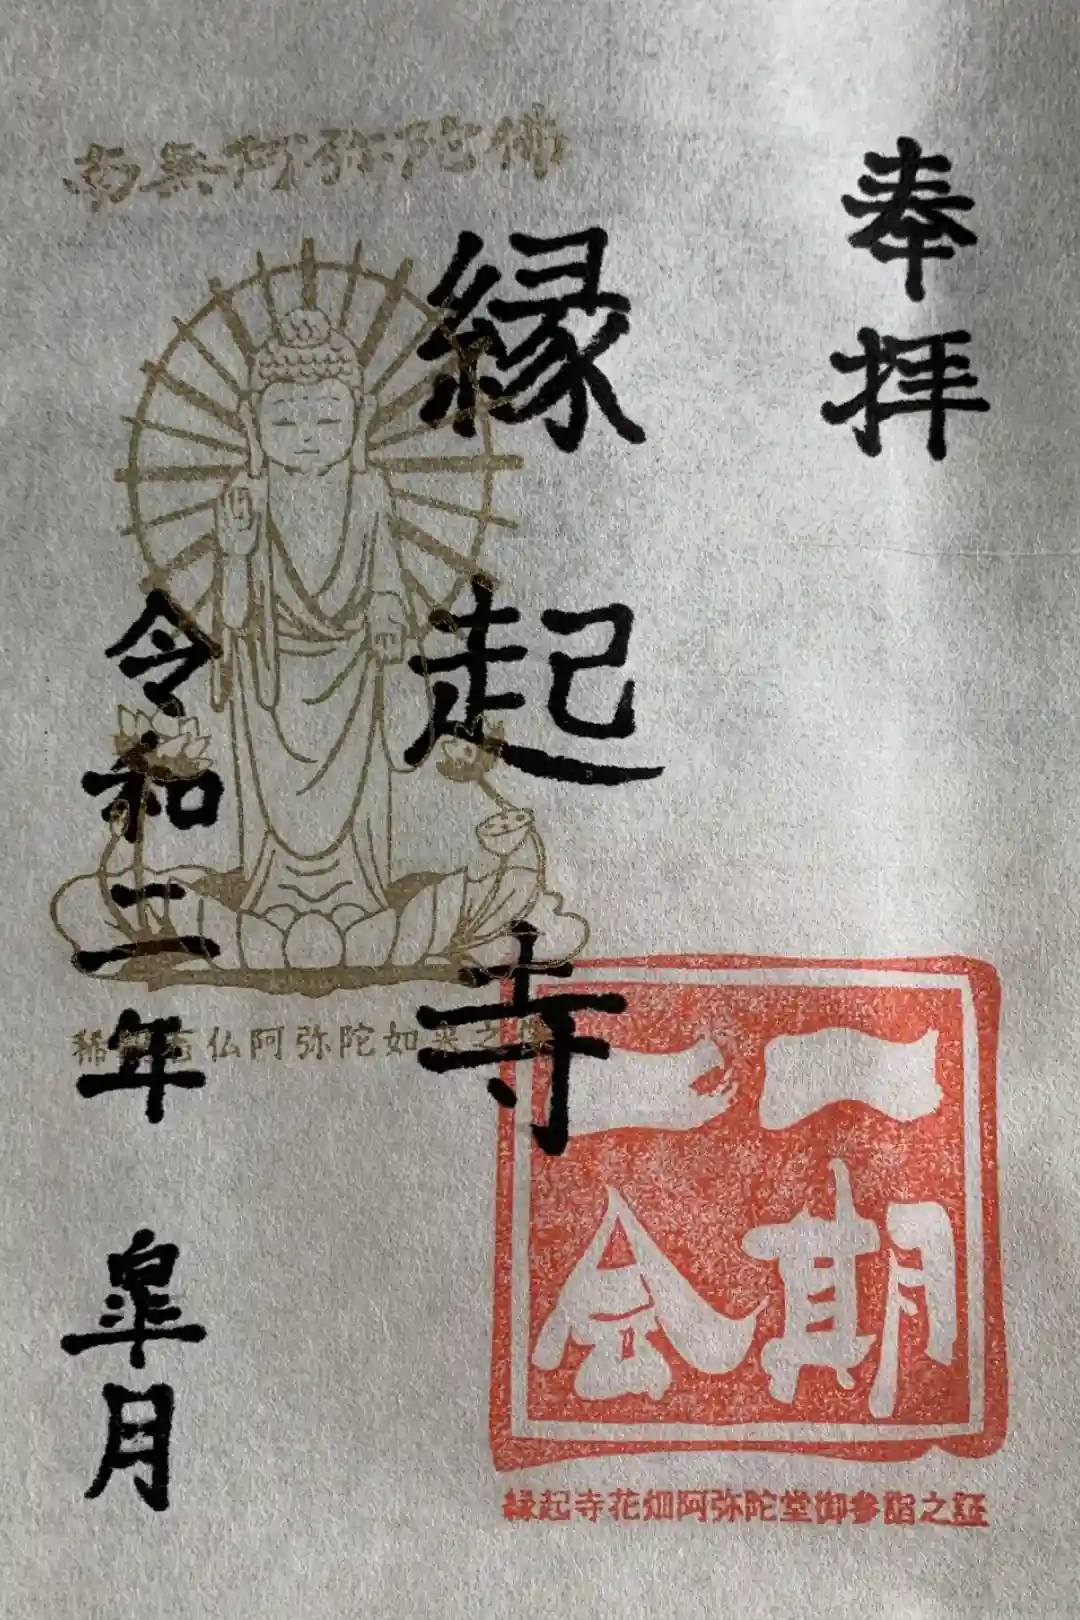 奉拝
縁起寺
南無阿弥陀佛
令和二年 皐月
仏阿弥陀如来之
一期
一会
縁起寺花畑阿弥陀堂御参詣之証